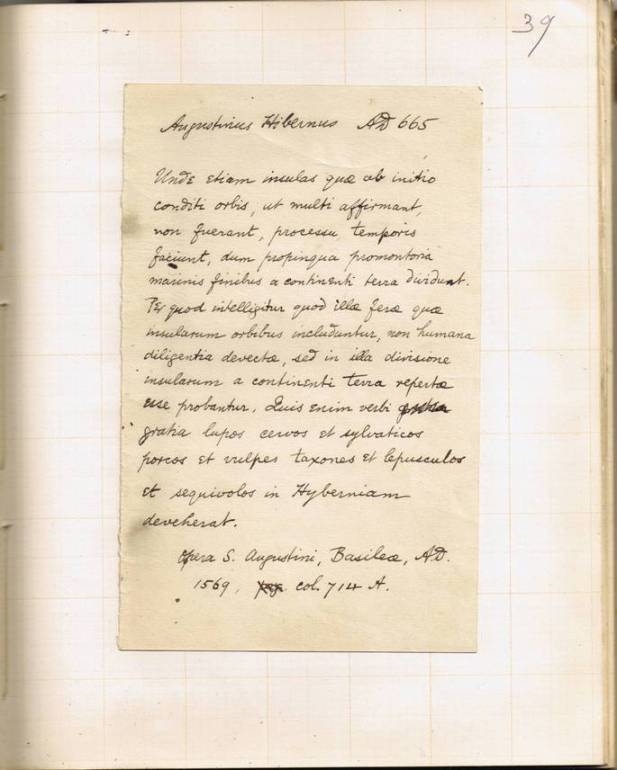 39
Augustinus Hibernus AD 665
Unde etiam insulas quæ ab initio
conditi orbis, ut multi affirmant,
non fuerant, processu temporis
faciunt, dum propinqua promontoria
marinis finibus a continenti terra dividunt.
Per quod intelligitur quod illæ feræ quæ
insularum orbibus includuntur, non humana
diligentia devectæ, sed in illa divisione
insularum a continenti terra repertæ
esse probantur. Quis enim verbi
gratia lupos cervos et sylvaticos
porcos et vulpes taxones et lepusculos
et sequivolos in Hyberniam
deveherat.
Opera S. Augustini, Basileæ, A.D.
1569, col. 714 A.